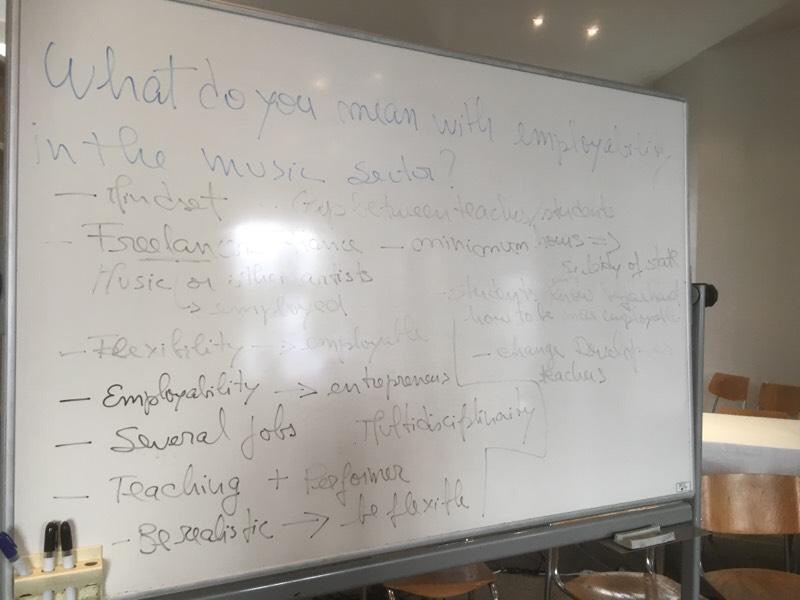 What do you mean with employability
in the music sector?
- Mindset Gaps between teacher/students
- Freelance - minimum hours =>
Music or other artists subsidy of state
-> employed students know
how to be more employable
- Flexibility -> employable
- change
teachers
- Employability -> entrepreneurs
- Several jobs Multidisciplinairy
- Teaching + Performer
- Be realistic -> be flexible